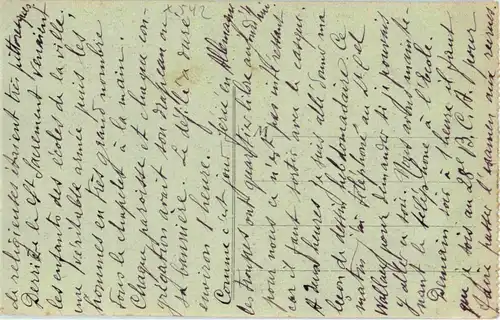 de religieuses étaient très pittoresques
Derrière le St Sacrement venaient
les enfants des écoles de la ville
une véritable armée puis les
hommes en très grand nombre
tous le chapelet à la main.
Chaque paroisse et chaque con-
grégation avait son drapeau ou
sa bannière. Le défilé a duré
environ 1 heure.
Comme c'est jour férié en Allemagne
les troupes ont quartier libre aujourd'hui
pour nous ce n'est pas intéressant
car il faut sortir avec le casque.
A 2 heures je suis allé donné ma
leçon de dessin hebdomadaire. Ce
matin j'ai téléphoné au Sgt
Wallany pour demander si je pouvais
y aller ce soir. Nous avons mainte-
nant le téléphone à l'école.
Demain soir à 1 heure il faut
que je sois au 28e B.C.A. pour
faire passer l'examen aux recrues
2542